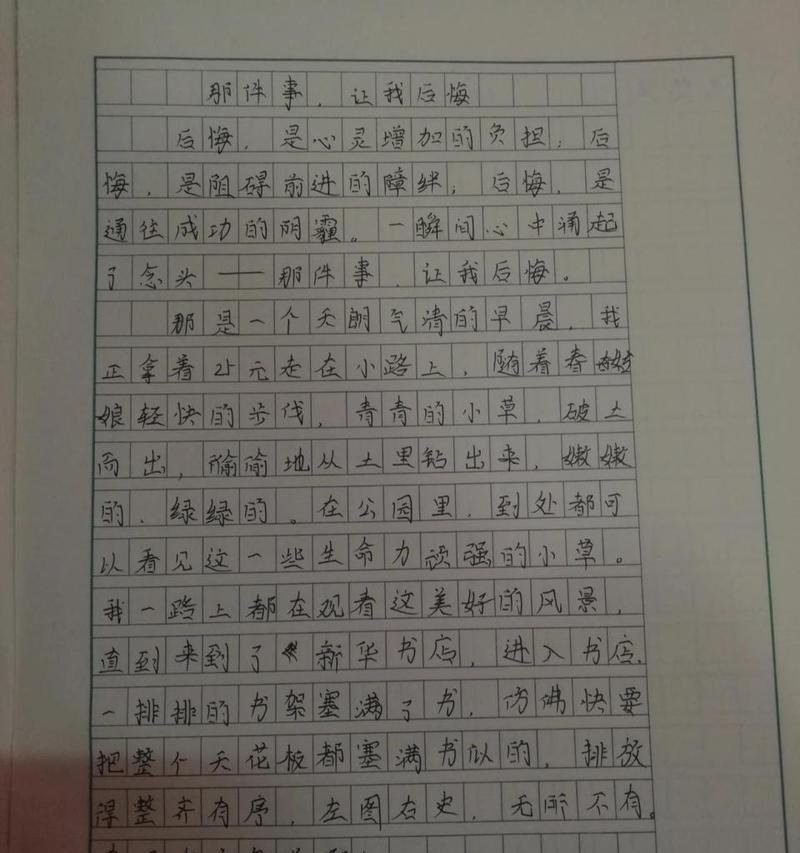 那件事，让我后悔
后悔，是心灵增加的负担；后
悔，是阻碍前进的障绊；后悔，是
通往成功的阴霾。一瞬间心中涌起
了念头——那件事，让我后悔。
那是一个天朗气清的早晨，我
正拿着25元走在小路上，随着春
娘轻快的步伐，青青的小草，破土
而出，偷偷地从土里钻出来，嫩嫩
的，绿绿的。在公园里，到处都可
以看见这一些生命力顽强的小草。
我一路上都在观看这美好的风景，
直到来到了《新华书店，进入书店，
一排排的书架塞满了书，仿佛快要
把整个天花板都塞满书似的，排放
得整齐有序，左图右史，无所不有。